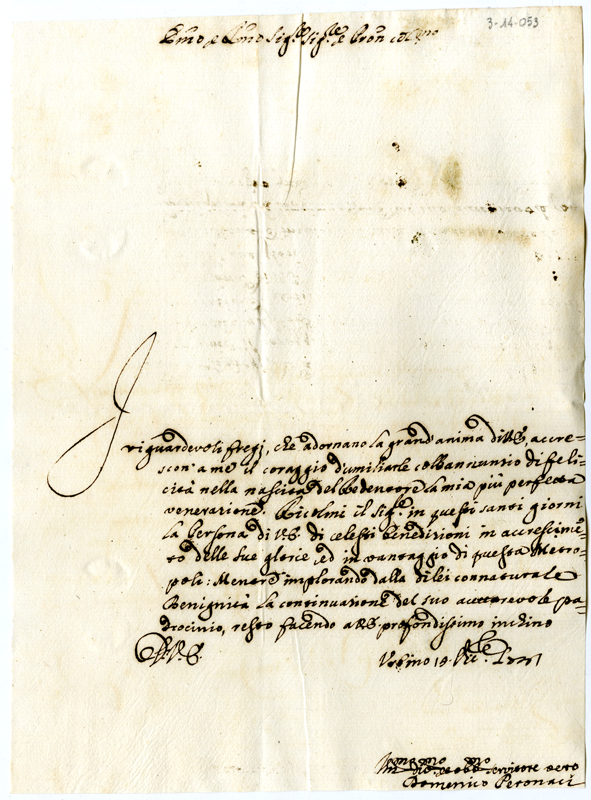 3-14-053
Emo e Rmo Sig.re Sig.re e Pron Col.mo
I riguardevoli fregi, che adornano la grand'anima di V.E. accre=
scon' a me il coraggio d'umiliarle coll'annuntio di feli=
cità nella nascita del Redentore la mia più perfetta
venerazione. Ricolmi il Sig.re in questi santi giorni
la Persona di V.E. di celesti benedizioni in accrescimē=
to delle sue glorie, ed in vantaggio di questa Metro=
poli: Mentre implorando dalla di lei connaturale
Benignità la continuazione del suo autorevole pa=
drocinio, resto facendo a V.E. profondissimo inchino
Di V.E.
Urbino 19
servitore
Domenico Peronaci